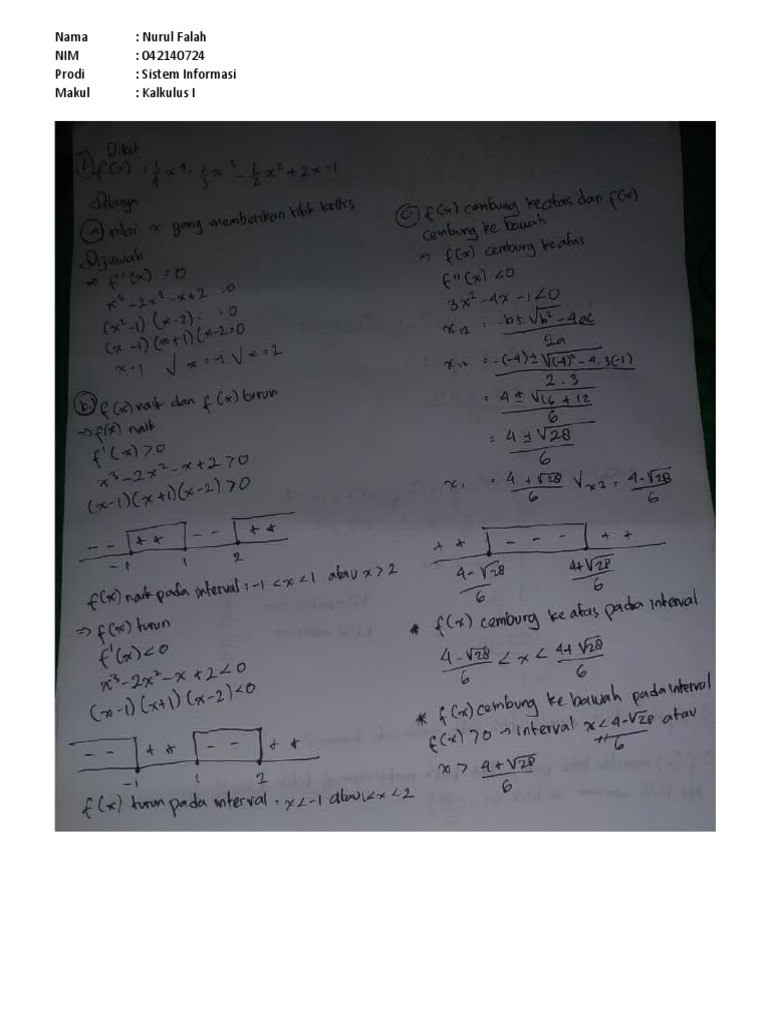 Nama : Nurul Falah
NIM : 042140724
Prodi : Sistem Informasi
Makul : Kalkulus I
Diket
1. f(x) = 1/4 x⁴ - 2/3 x³ - 1/2 x² + 2x - 1
Ditanya
a) nilai x yang memberikan titik kritis
Dijawab
⇒ f'(x) = 0
x³ - 2x² - x + 2 = 0
(x² - 1) (x - 2) = 0
(x - 1) (x + 1) (x - 2 = 0
x = 1 √ x = -1 √ x = 2
b) f(x) naik dan f(x) turun
⇒ f(x) naik
f'(x) > 0
x³ - 2x² - x + 2 > 0
(x - 1)(x + 1)(x - 2) > 0
- - + + - - + +
-1 1 2
f(x) naik pada interval : -1 < x < 1 atau x > 2
⇒ f(x) turun
f'(x) < 0
x³ - 2x² - x + 2 < 0
(x - 1) (x + 1) (x - 2) < 0
- - + + - - + +
-1 1 2
f(x) turun pada interval : x < -1 atau 1 < x < 2
c) f(x) cembung keatas dan f(x)
cembung ke bawah
⇒ f(x) cembung keatas
f''(x) < 0
3x² - 4x - 1 < 0
x₁₂ = -b ± √b² - 4ac / 2a
x₁₂ = -(-4) ± √(-4)² - 4. 3(-1) / 2 . 3
= 4 ± √16 + 12 / 6
= 4 ± √28 / 6
x₁ = 4 + √28 / 6 √ x2 = 4 - √28 / 6
+ + - - - + +
4 - √28 / 6 4 + √28 / 6
* f(x) cembung ke atas pada interval
4 - √28 / 6 < x < 4 + √28 / 6
* f(x) cembung ke bawah pada interval
f(x) > 0 → interval x < 4 - √28 / 6 atau
x > 4 + √28 / 6